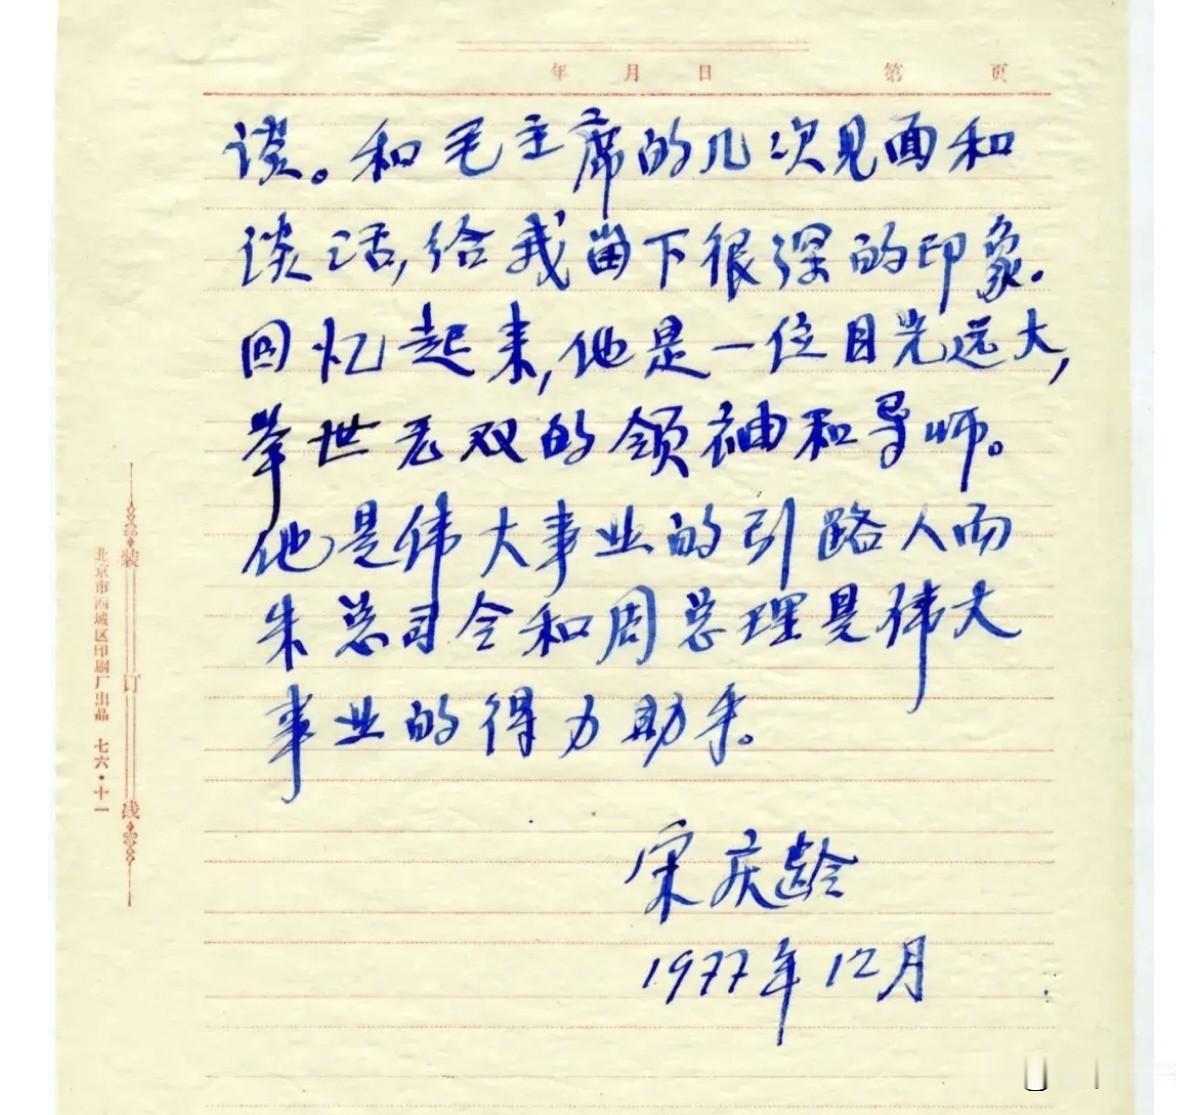 年 月 日 第 页
谈。和毛主席的几次见面和
谈话,给我留下很深的印象.
回忆起来,他是一位目光远大,
举世无双的领袖和导师。
他是伟大事业的引路人而
朱总司令和周总理是伟大
事业的得力助手。
宋庆龄
1977年12月
装订线
北京市西城区印刷厂出品 七六·十一